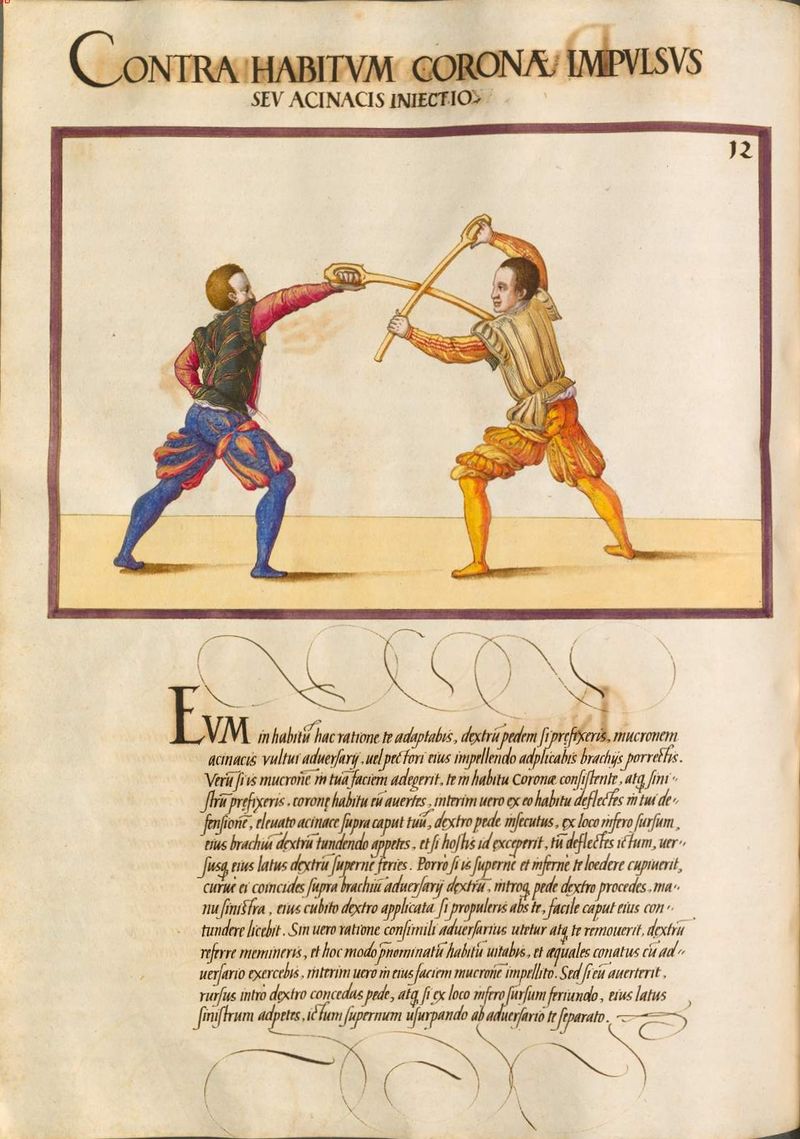 CONTRA HABITVM CORONÆ IMPVLSVS
SEV ACINACIS INIECTIO
12
EVM in habitū hac ratione te adaptabis, dextrū pedem si prefixeris, mucronem
acinacis vultui aduersarij, uel pectori eius impellendo adplicabis brachijs porrectis.
Verū si is mucronē in tuā faciem adegerit, te in habitu Coronæ consistente, atq sini-
strū prefixeris, coronę habitu eū auertes, interim uero ex eo habitu deflectes in tui de-
fensionē, eleuato acinace supra caput tuū, dextro pede insecutus, ex loco infero sursum,
eius brachiū dextrū tundendo appetes, et si hostis id exceperit, tū deflectes ictum, uer-
susq eius latus dextrū superne feries. Porro si is superne et inferne te loedere cupiuerit,
curue ei coincides supra brachiū aduersarij dextrū, introq pede dextro procedes, ma-
nu sinistra, eius cubito dextro applicata si propuleris abs te, facile caput eius con-
tundere licebit. Sin uero ratione consimili aduersarius utetur atq te remouerit, dextrū
referre memineris, et hoc modo p̄nominatū habitū uitabis, et æquales conatus cū ad-
uersario exercebis, interim uero in eius faciem mucronē impellito. Sed si eū auerterit,
rursus intro dextro concedas pede, atq si ex loco infero sursum feriundo, eius latus
sinistrum adpetes, ictum supernum usurpando ab aduersario te separato.